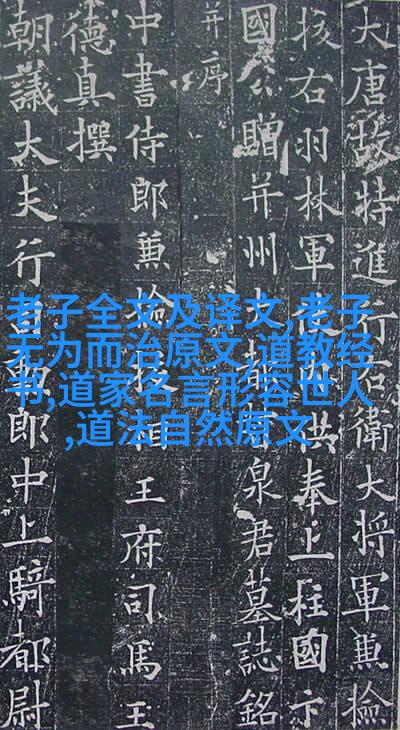 大唐故特進行右衛大將軍兼檢
校右羽林軍供奉上柱國卞
國公贈并州大都督泉君墓誌銘
并序
中書侍郎兼檢校相王府司馬王
德真撰
朝議大夫行司勳郎中上騎都尉
老子全文及译文,老子
无为而治原文,道教经
书,道家名言形容世人
,道法自然原文